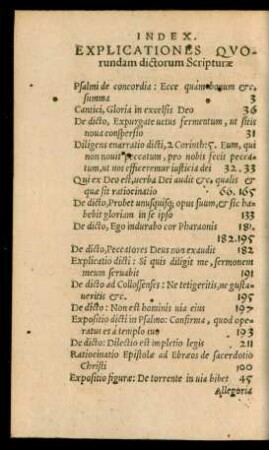 INDEX.
EXPLICATIONES QVO-
rundam dictorum Scripturæ
Psalmi de concordia: Ecce quàm bonum &c.
summa 3
Cantici, Gloria in excelsis Deo 36
De dicto, Expurgate uetus fermentum, ut sitis
noua conspersio 31
Diligens enarratio dicti, 2 Corinth: 5. Eum, qui
non nouit peccatum, pro nobis fecit pecca-
tum, ut nos efficeremur iusticia dei 32. 33
Qui ex Deo est, uerba Dei audit &c, qualis &
quæ sit ratiocinatio 66. 165
De dicto, Probet unusquisq; opus suum, & sic ha-
bebit gloriam in se ipso 133
De dicto, Ego indurabo cor Pharaonis 181.
182. 195
De dicto, Peccatores Deus non exaudit 182
Explicatio dicti: Si quis diligit me, sermonem
meum seruabit 191
De dicto ad Collossenses: Ne tetigeritis, ne gusta-
ueritis &c. 195
De dicto: Non est hominis uia eius 197
Expositio dicti in Psalmo: Confirma, quod ope-
ratus es à templo tuo 193
De dicto: Dilectio est impletio legis 211
Ratiocinatio Epistolæ ad Ebræos de sacerdotio
Christi 100
Expositio figuræ: De torrente in uia bibet 45
Allegoria